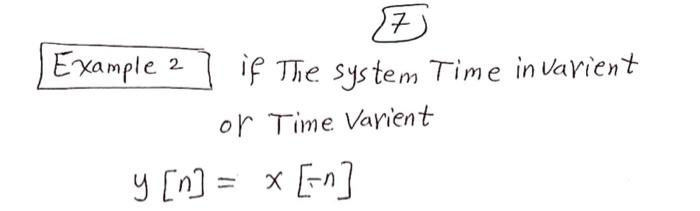 7
Example 2 if The system Time invarient
or Time Varient
y [n] = x [-n]